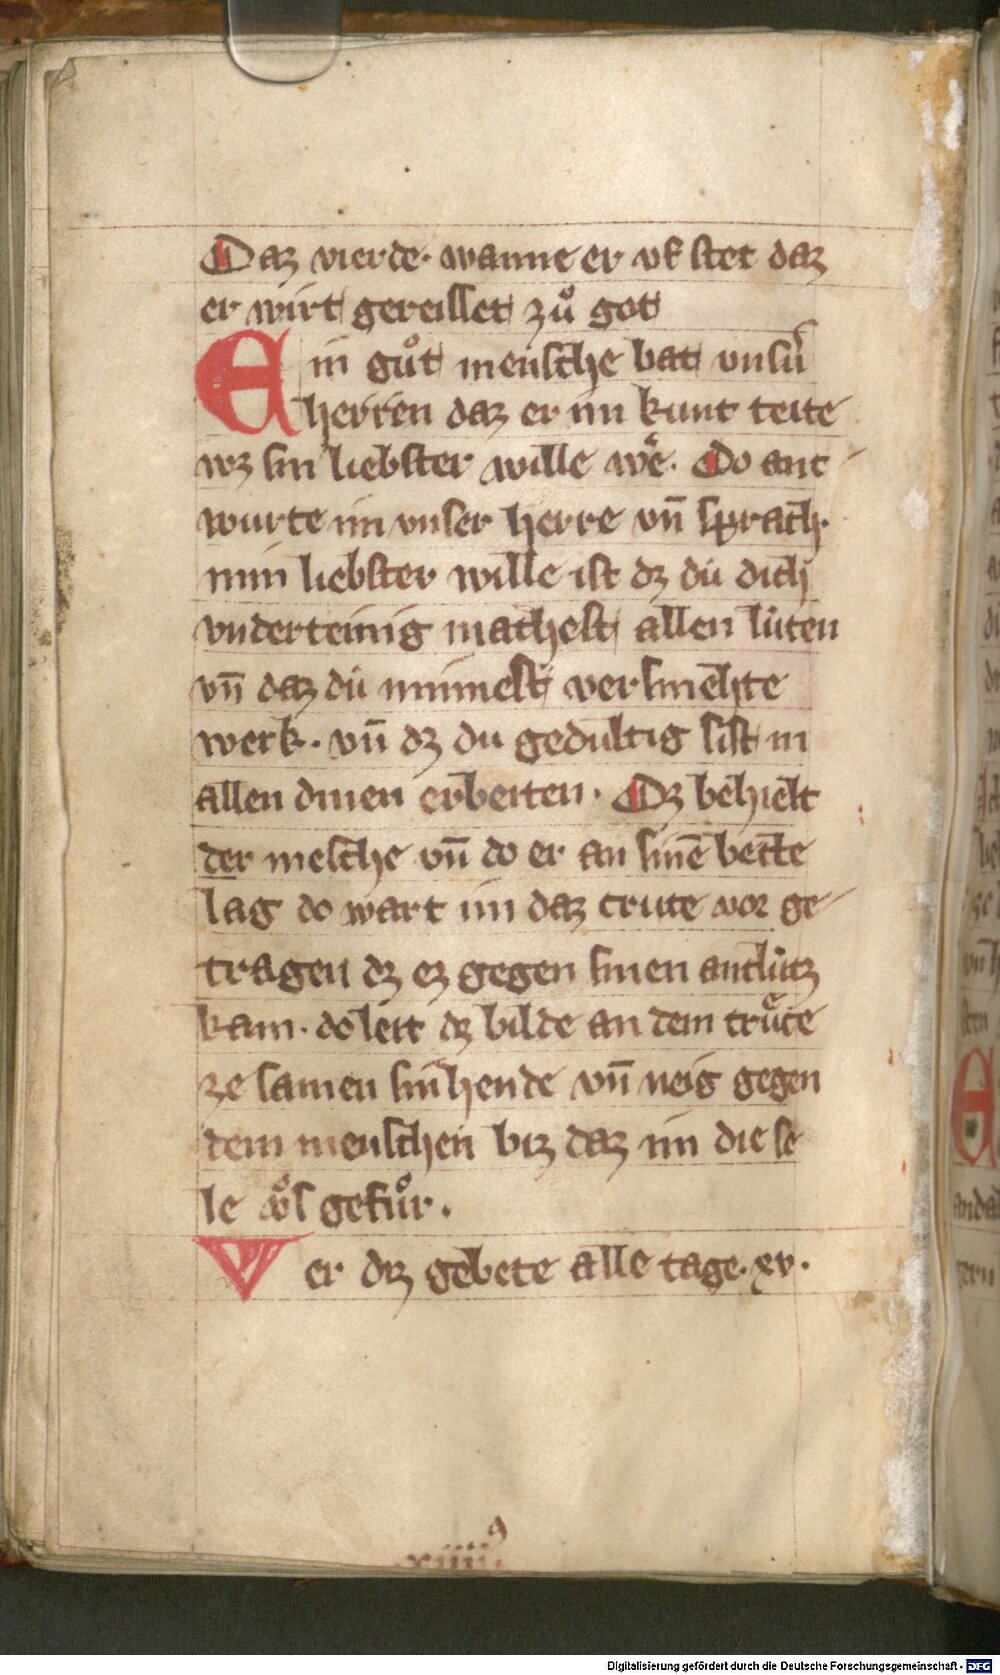 Daz vierde· wanne er vf stet daz
er wirt gereisset zuͦ got
Ein guͦt mensche bat vnsů
herren daz er im kunt tette
wz sin liebster wille weͤ. Do ant
wurte im vnser herre vn̄ sprach·
min liebster wille ist dz dú dich
vndertenig machest allen lúten
vn̄ daz dú minnest versmehte
werk· vn̄ dz du gedultig sist in
allen dinen erbeiten· Dz behielt
der mesche vn̄ do er an sinē bette
lag do wart im daz crutze vor ge
tragen dz ez gegen sinen antlútz
kam· do leit dz bilde an dem crúͤce
ze samen sin hende vn̄ neig gegen
dem menschen biz daz im die se
le vͦs gefuͦr.
Wer diz gebete alle tage· xv·
xiiii⁹
Digitalisierung gefördert durch die Deutsche Forschungsgemeinschaft - DFG